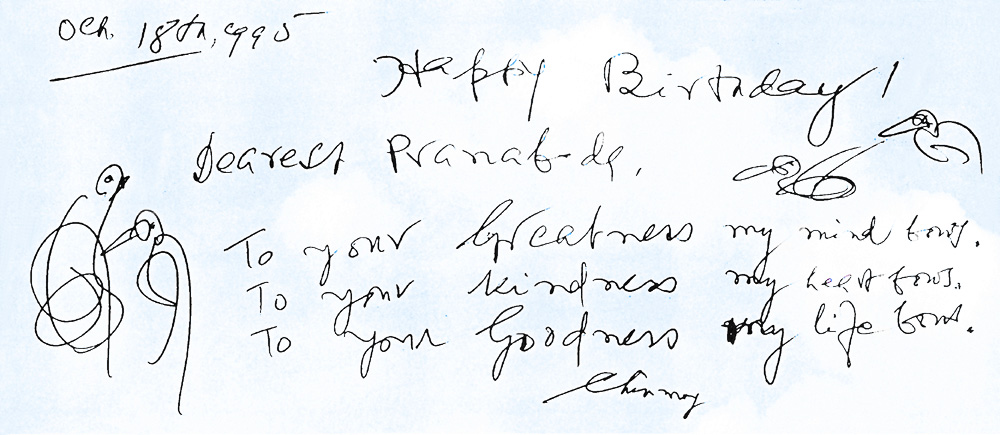 Oct. 18th, 1995
Happy Birthday!
Dearest Pranab-da,
To your Greatness my mind bows.
To your kindness my heart bows.
To your Goodness my life bows.
Chinmoy